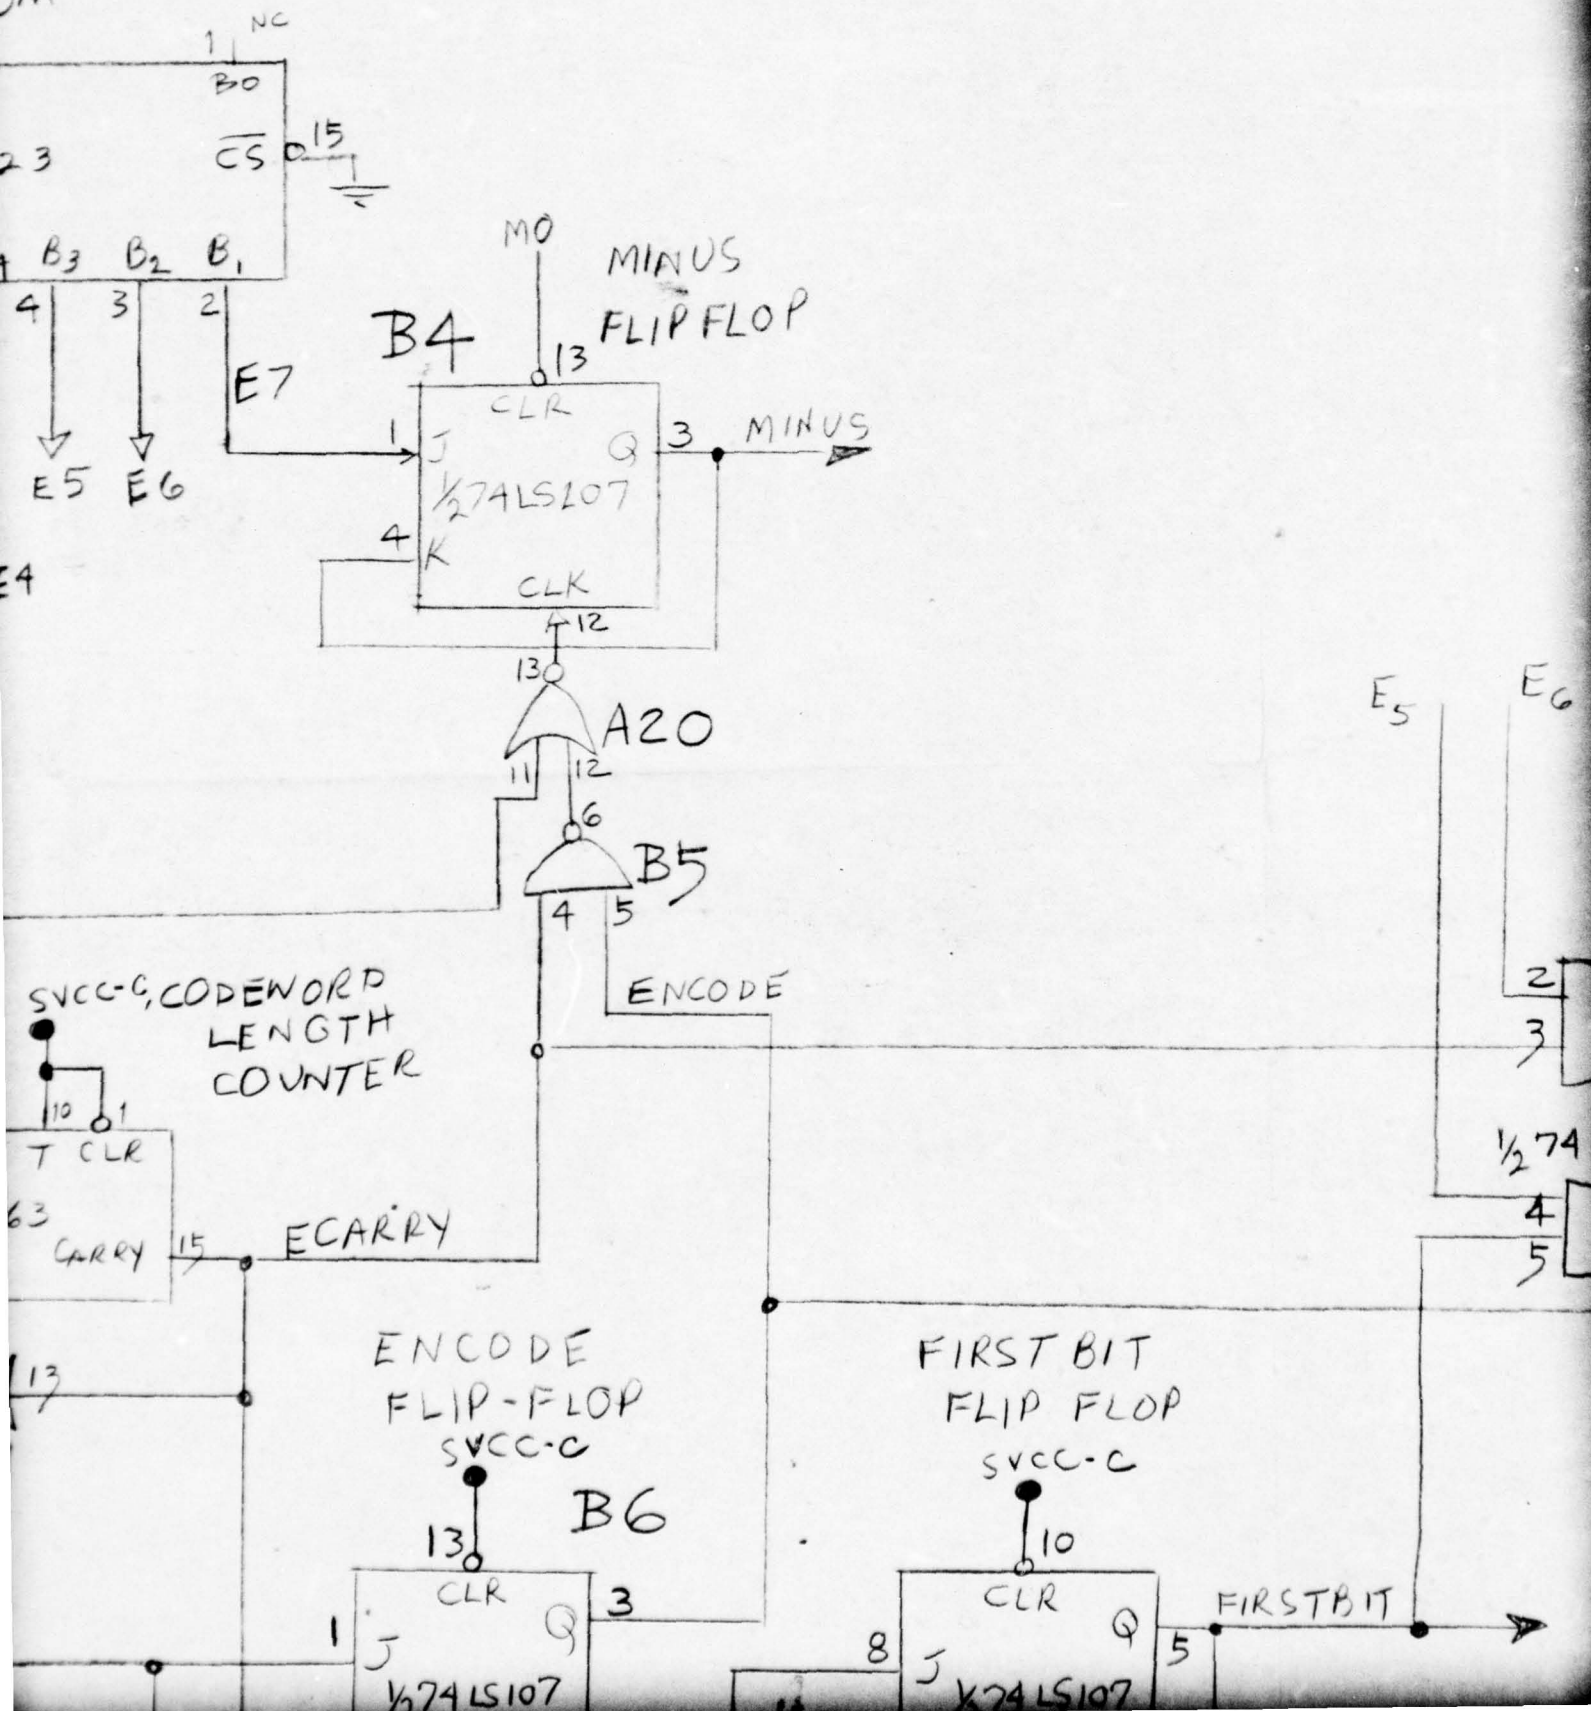 1 NC
B0
23
CS 15
B3 B2 B1
4 3 2
E7
E5 E6
E4
M0
MINUS
FLIP FLOP
B4
13
CLR
1 J
Q 3 MINUS
1/2 74LS107
4 K
CLK
12
13
A20
11 12
6
B5
4 5
ENCODE
E5 E6
2
3
1/2 74
4
5
5VCC-C, CODEWORD
LENGTH
COUNTER
10 1
T CLR
63
CARRY 15
ECARRY
13
ENCODE
FLIP-FLOP
5VCC-C
B6
13
CLR
1 J
Q 3
1/2 74LS107
FIRSTBIT
FLIP FLOP
5VCC-C
10
CLR
8 J
Q 5
FIRSTBIT
1/2 74LS107